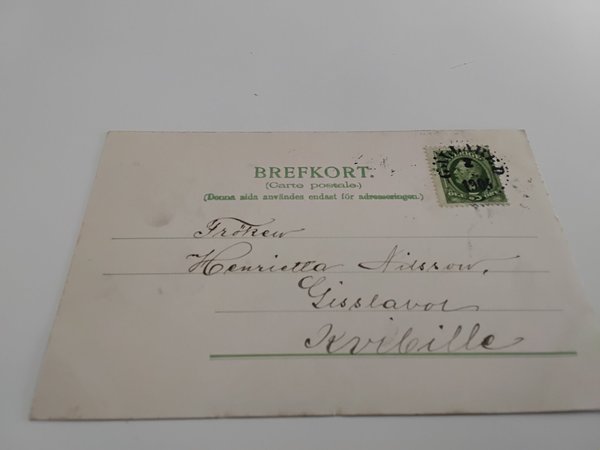 BREFKORT.
(Carte postale.)
(Denna sida användes endast för adresseringen.)
Fröken
Henrietta Nilsson.
Gisslavor
Kvibille